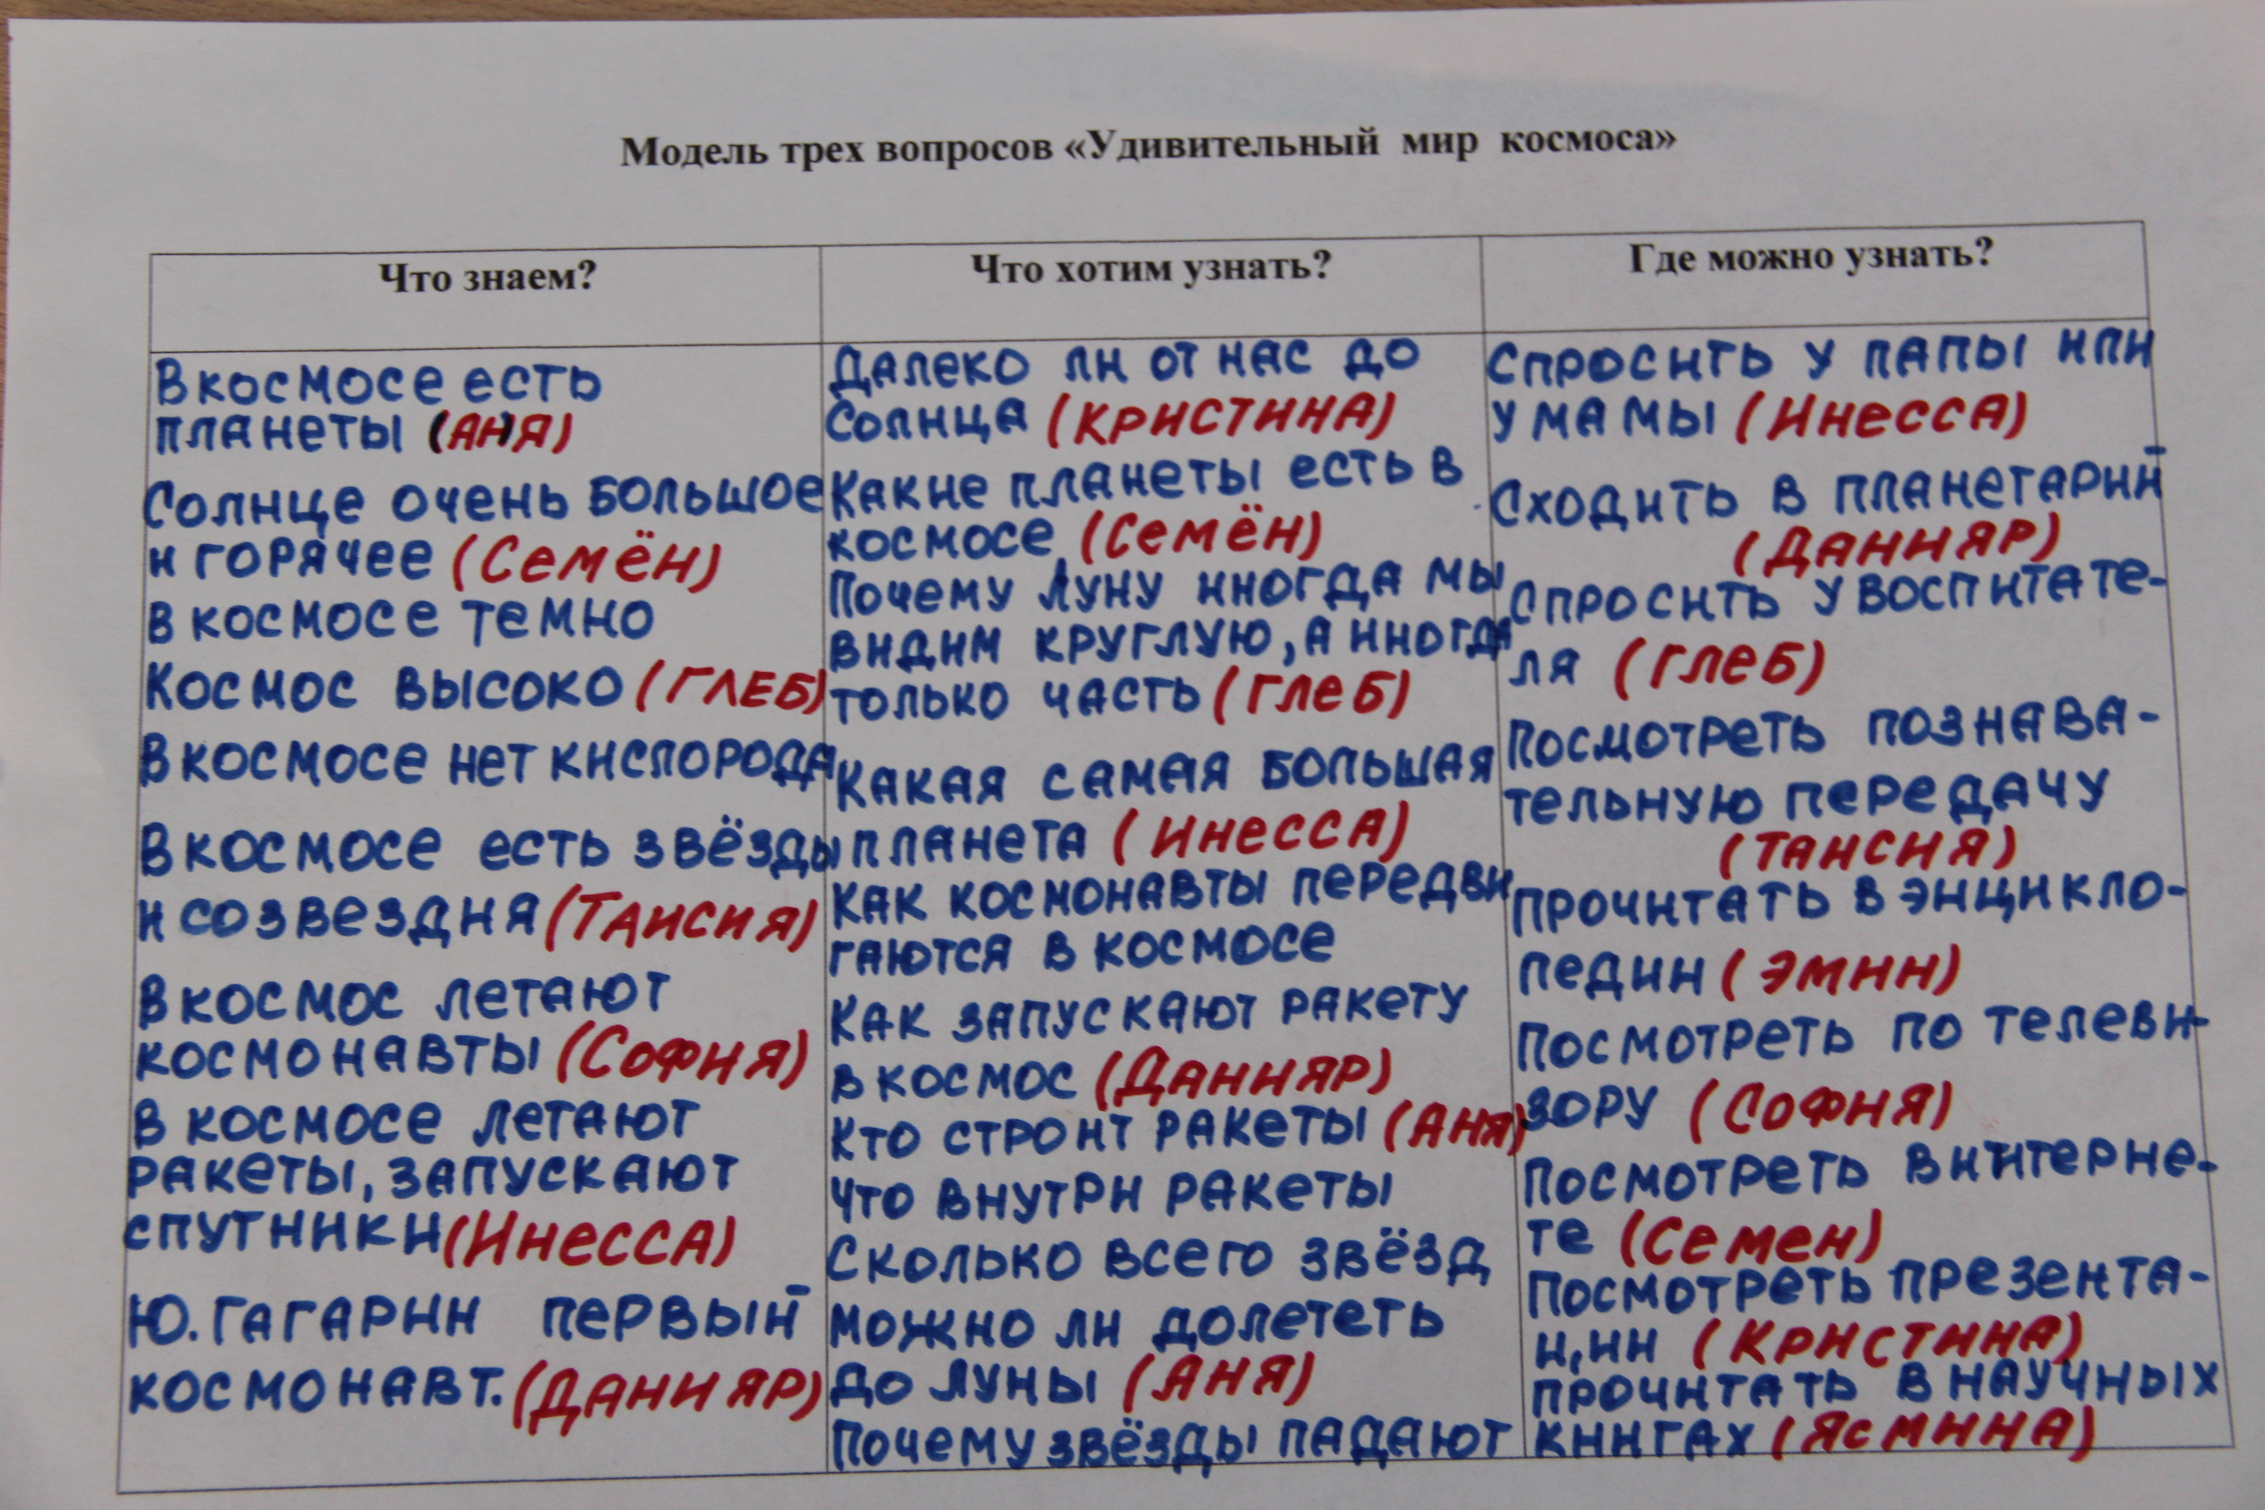 Модель трех вопросов «Удивительный мир космоса»
Что знаем?
В космосе есть
планеты (Аня)
Солнце очень большое
и горячее (Семён)
В космосе темно
Космос высоко (Глеб)
В космосе нет кислорода
В космосе есть звёзды
и созвездия (Таисия)
В космос летают
космонавты (София)
В космосе летают
ракеты, запускают
спутники (Инесса)
Ю. Гагарин первый
космонавт. (Данияр)
Что хотим узнать?
Далеко ли от нас до
Солнца (Кристина)
Какие планеты есть в
космосе (Семён)
Почему Луну иногда мы
видим круглую, а иногда
только часть (Глеб)
Какая самая большая
планета (Инесса)
Как космонавты передви
гаются в космосе
Как запускают ракету
в космос (Данияр)
Кто строит ракеты (Аня)
Что внутри ракеты
Сколько всего звёзд
Можно ли долететь
до Луны (Аня)
Почему звёзды падают
Где можно узнать?
Спросить у папы или
у мамы (Инесса)
Сходить в планетарий
(Данияр)
Спросить у воспитате-
ля (Глеб)
Посмотреть познава-
тельную передачу
(Таисия)
Прочитать в энцикло-
педии (Эмин)
Посмотреть по телеви-
зору (София)
Посмотреть в интерне-
те (Семен)
Посмотреть презента-
ции (Кристина)
Прочитать в научных
книгах (Ясмина)